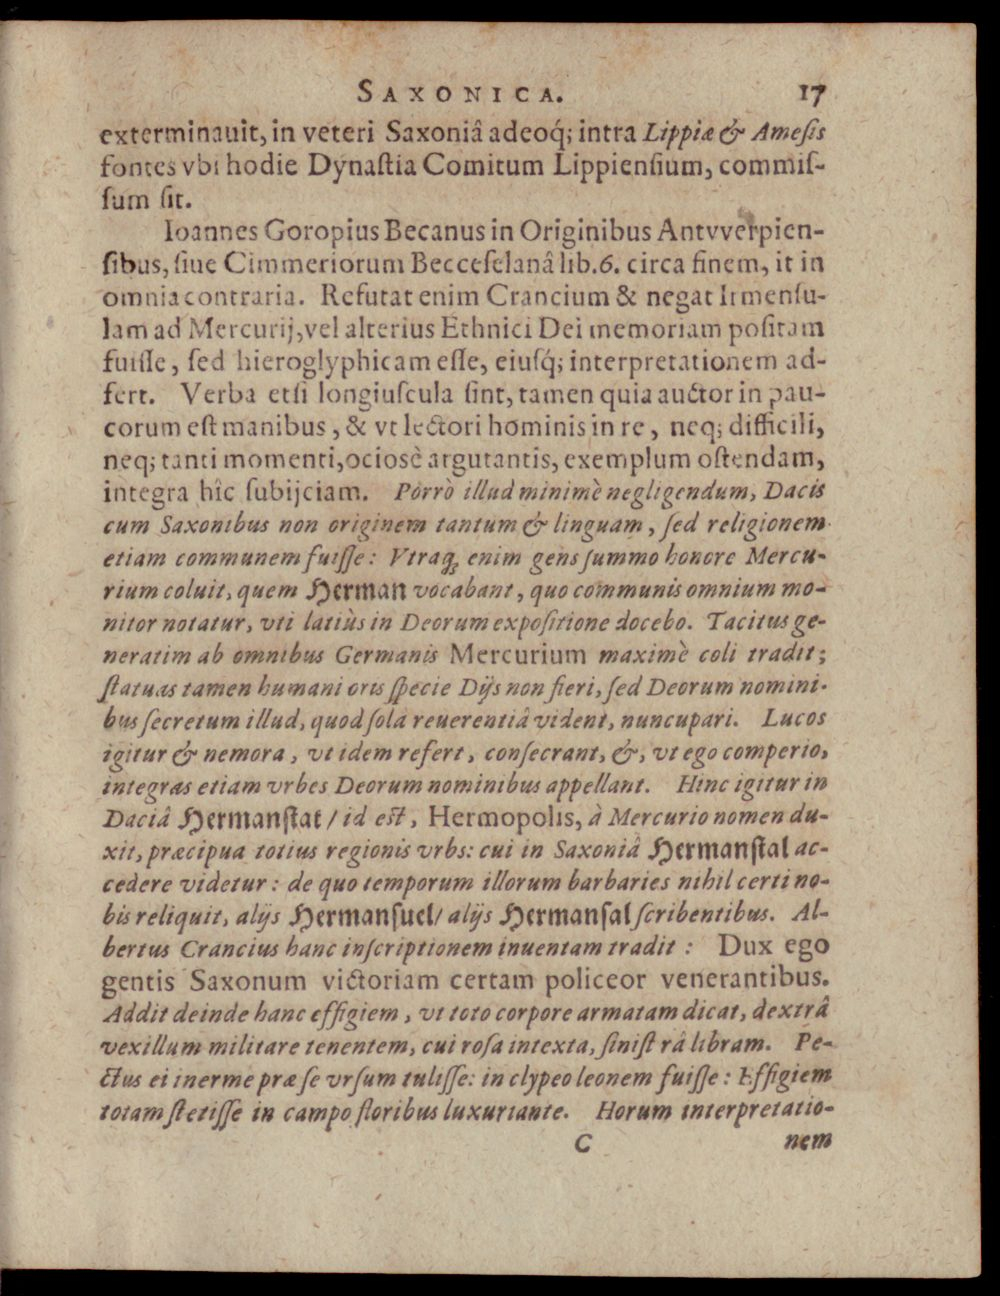 SAXONICA. 17
exterminauit, in veteri Saxoniâ adeoq́; intra Lippiæ & Amesis
fontes vbi hodie Dynastia Comitum Lippiensium, commis-
sum sit.
Ioannes Goropius Becanus in Originibus Antvverpien-
sibus, siue Cimmeriorum Becceselanâ lib.6. circa finem, it in
omnia contraria. Refutat enim Crancium & negat Irmensu-
lam ad Mercurij, vel alterius Ethnici Dei memoriam positam
fuisse, sed hieroglyphicam esse, eiusq́; interpretationem ad-
fert. Verba etsi longiuscula sint, tamen quia auctor in pau-
corum est manibus, & vt lectori hominis in re, neq; difficili,
neq; tanti momenti, ociosè argutantis, exemplum ostendam,
integra hîc subijciam. Pórrò illud minimè negligendum, Dacis
cum Saxonibus non originem tantum & linguam, sed religionem
etiam communem fuisse: Vtraq; enim gens summo honore Mercu-
rium coluit, quem Herman vocabant, quo communis omnium mo-
nitor notatur, vti latiùs in Deorum expositione docebo. Tacitus ge-
neratim ab omnibus Germanis Mercurium maximè coli tradit;
statuas tamen humani oris specie Dijs non fieri, sed Deorum nomini-
bus secretum illud, quod sola reuerentiâ vident, nuncupari. Lucos
igitur & nemora, vt idem refert, consecrant, &, vt ego comperio,
integras etiam vrbes Deorum nominibus appellant. Hinc igitur in
Daciâ Hermanstat / id est, Hermopolis, à Mercurio nomen du-
xit, præcipua totius regionis vrbs: cui in Saxoniâ Hermanstal ac-
cedere videtur: de quo temporum illorum barbaries nihil certi no-
bis reliquit, alijs Hermansuel / alijs Hermansal scribentibus. Al-
bertus Crancius hanc inscriptionem inuentam tradit: Dux ego
gentis Saxonum victoriam certam policeor venerantibus.
Addit deinde hanc effigiem, vt toto corpore armatam dicat, dextrâ
vexillum militare tenentem, cui rosa intexta, sinistrâ libram. Pe-
ctus ei inerme præ se vrsum tulisse: in clypeo leonem fuisse: Effigiem
totam stetisse in campo floribus luxuriante. Horum interpretatio-
C nem